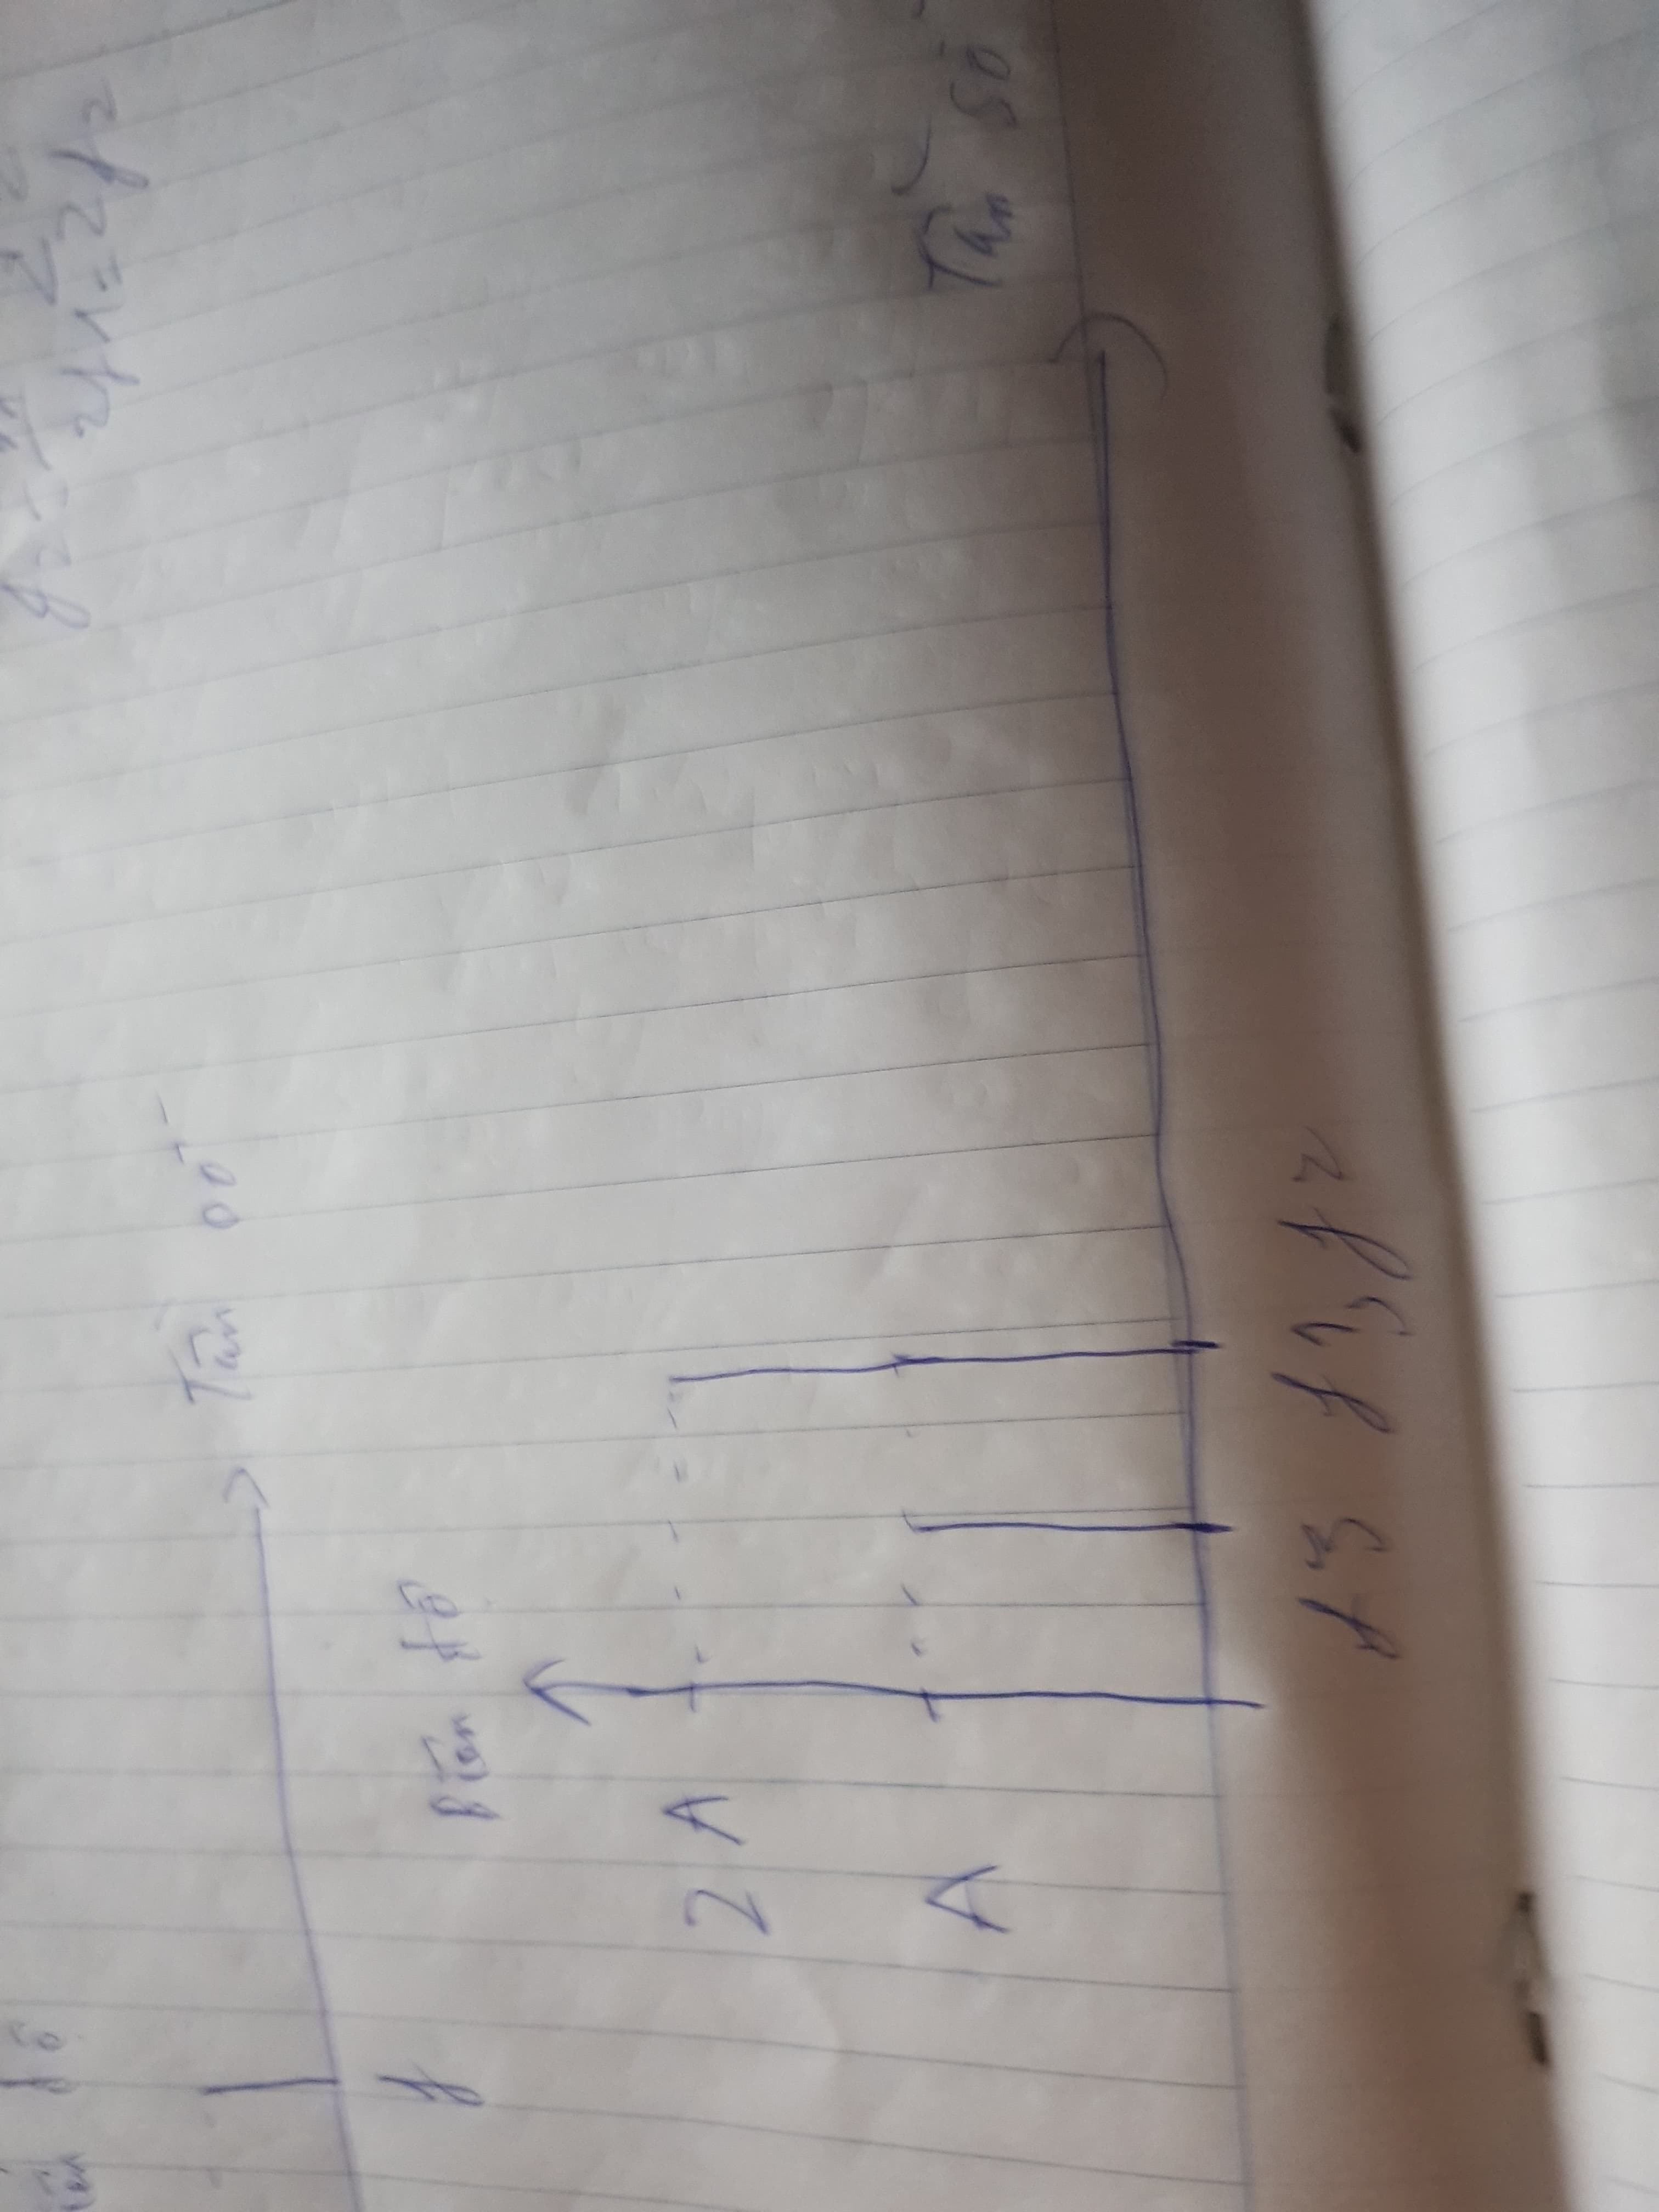 2f1 = 2f2
Tần số
f
Biên độ
2A
A
f3 f1, f2
Tần số